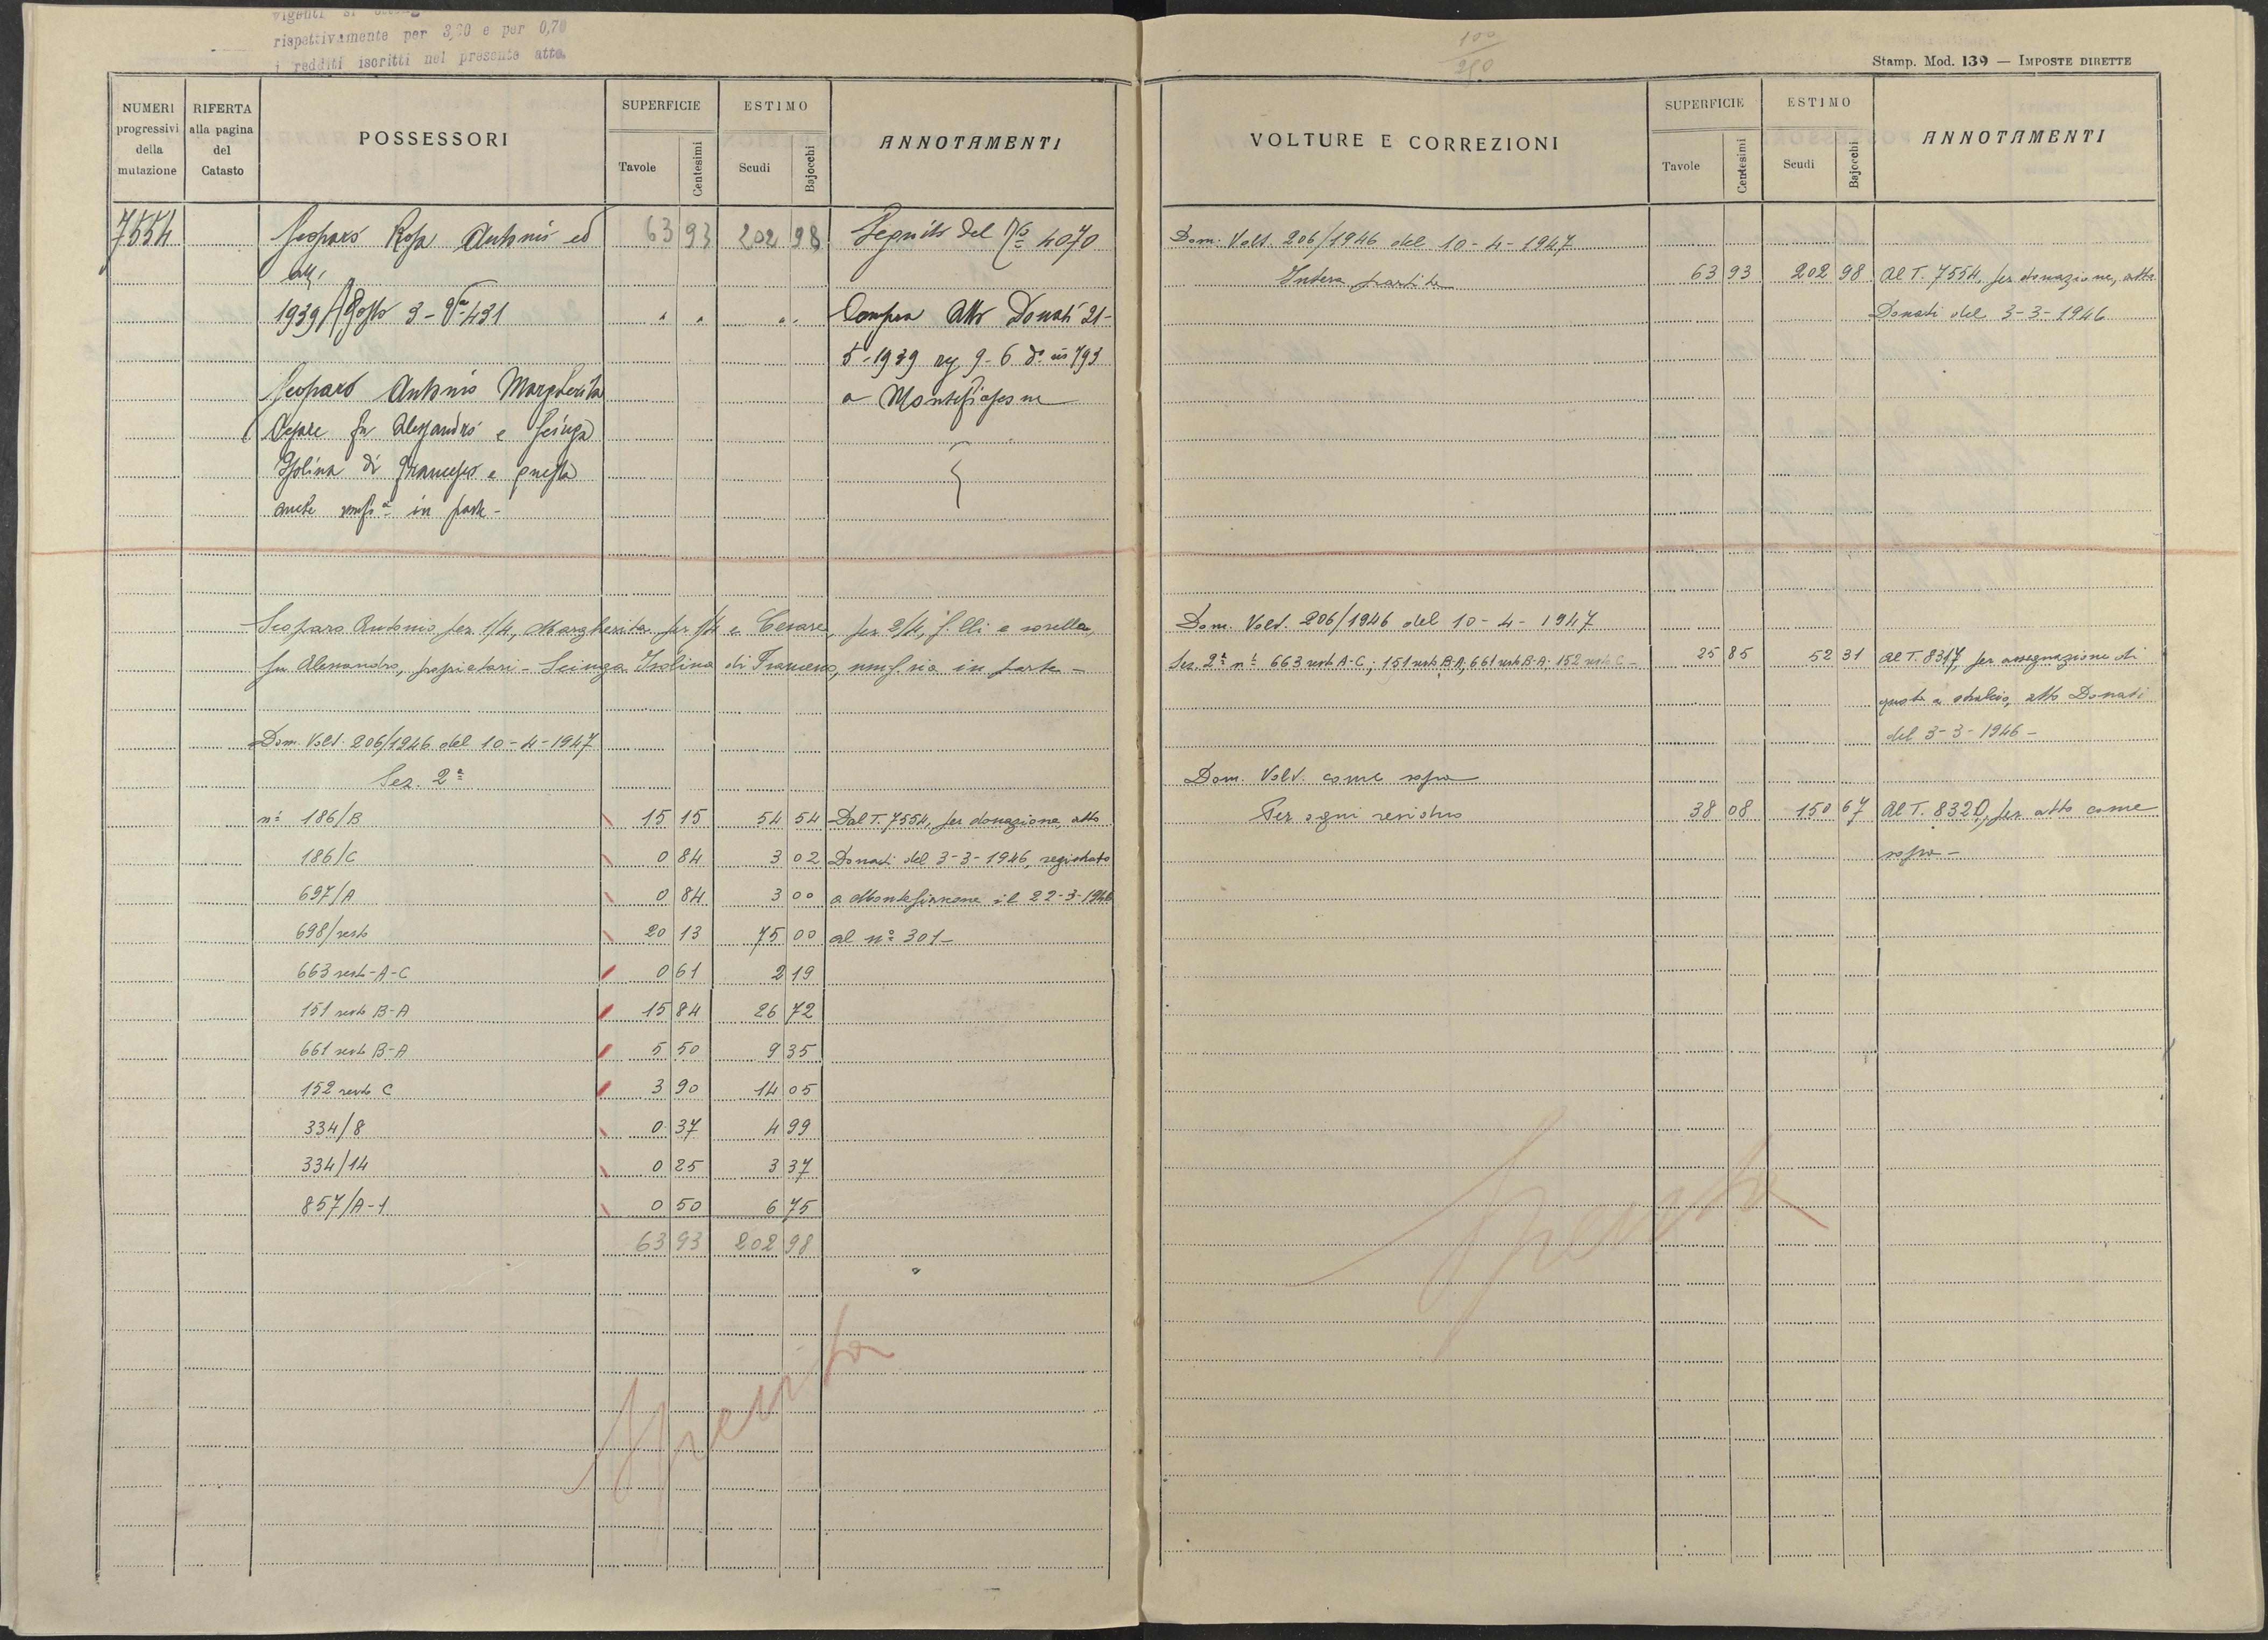 vigenti si
rispettivamente per 3,60 e per 0,70
i redditi iscritti nel presente atto.
NUMERI progressivi della mutazione
RIFERTA alla pagina del Catasto
POSSESSORI
SUPERFICIE
Tavole
Centesimi
ESTIMO
Scudi
Bajocchi
ANNOTAMENTI
7554 Scoparo Rosa Antonio ed 63 93 202 98 Seguito del N° 4070
altri
1939 Agosto 3 - 431 " " " " Compra Atto Donati 21-
5-1939 reg 9-6 d° 793
Scoparo Antonio Margherita a Montefiascone
Cesare fu Alessandro e Sciuga
Isolina di Francesco e questa
anche usuf.a in parte -
Scoparo Antonio per 1/4, Margherita per 1/4 e Cesare, per 2/4, f.lli e sorella,
fu Alessandro, proprietari - Sciuga Isolina di Francesco, usuf.ria in parte -
Dom. Volt. 206/1946 del 10-4-1947
Sez. 2ª
n¹ 186/B 15 15 54 54 Dal T. 7554, per donazione, atto
186/C 0 84 3 02 Donati del 3-3-1946, registrato
697/A 0 84 3 00 a Montefiascone il 22-3-1946
698/resto 20 13 75 00 al n° 301-
663 resto-A-C 0 61 2 19
151 resto B-A 15 84 26 72
661 resto B-A 5 50 9 35
152 resto C 3 90 14 05
334/8 0 37 4 99
334/14 0 25 3 37
857/A-1 0 50 6 75
63 93 202 98
Spenta
100
250
Stamp. Mod. 139 — IMPOSTE DIRETTE
VOLTURE E CORREZIONI
SUPERFICIE
Tavole
Centesimi
ESTIMO
Scudi
Bajocchi
ANNOTAMENTI
Dom. Volt. 206/1946 del 10-4-1947
Intera partita 63 93 202 98 Al T. 7554, per donazione, atto
Donati del 3-3-1946
Dom. Volt. 206/1946 del 10-4-1947
Sez. 2ª n¹ 663 resto A-C; 151 resto B-A; 661 resto B-A; 152 resto C - 25 85 52 31 Al T. 8317, per assegnazione di
quota a stralcio, atto Donati
del 3-3-1946 -
Dom. Volt. come sopra
Per ogni residuo 38 08 150 67 Al T. 8320, per atto come
sopra -
Spenta